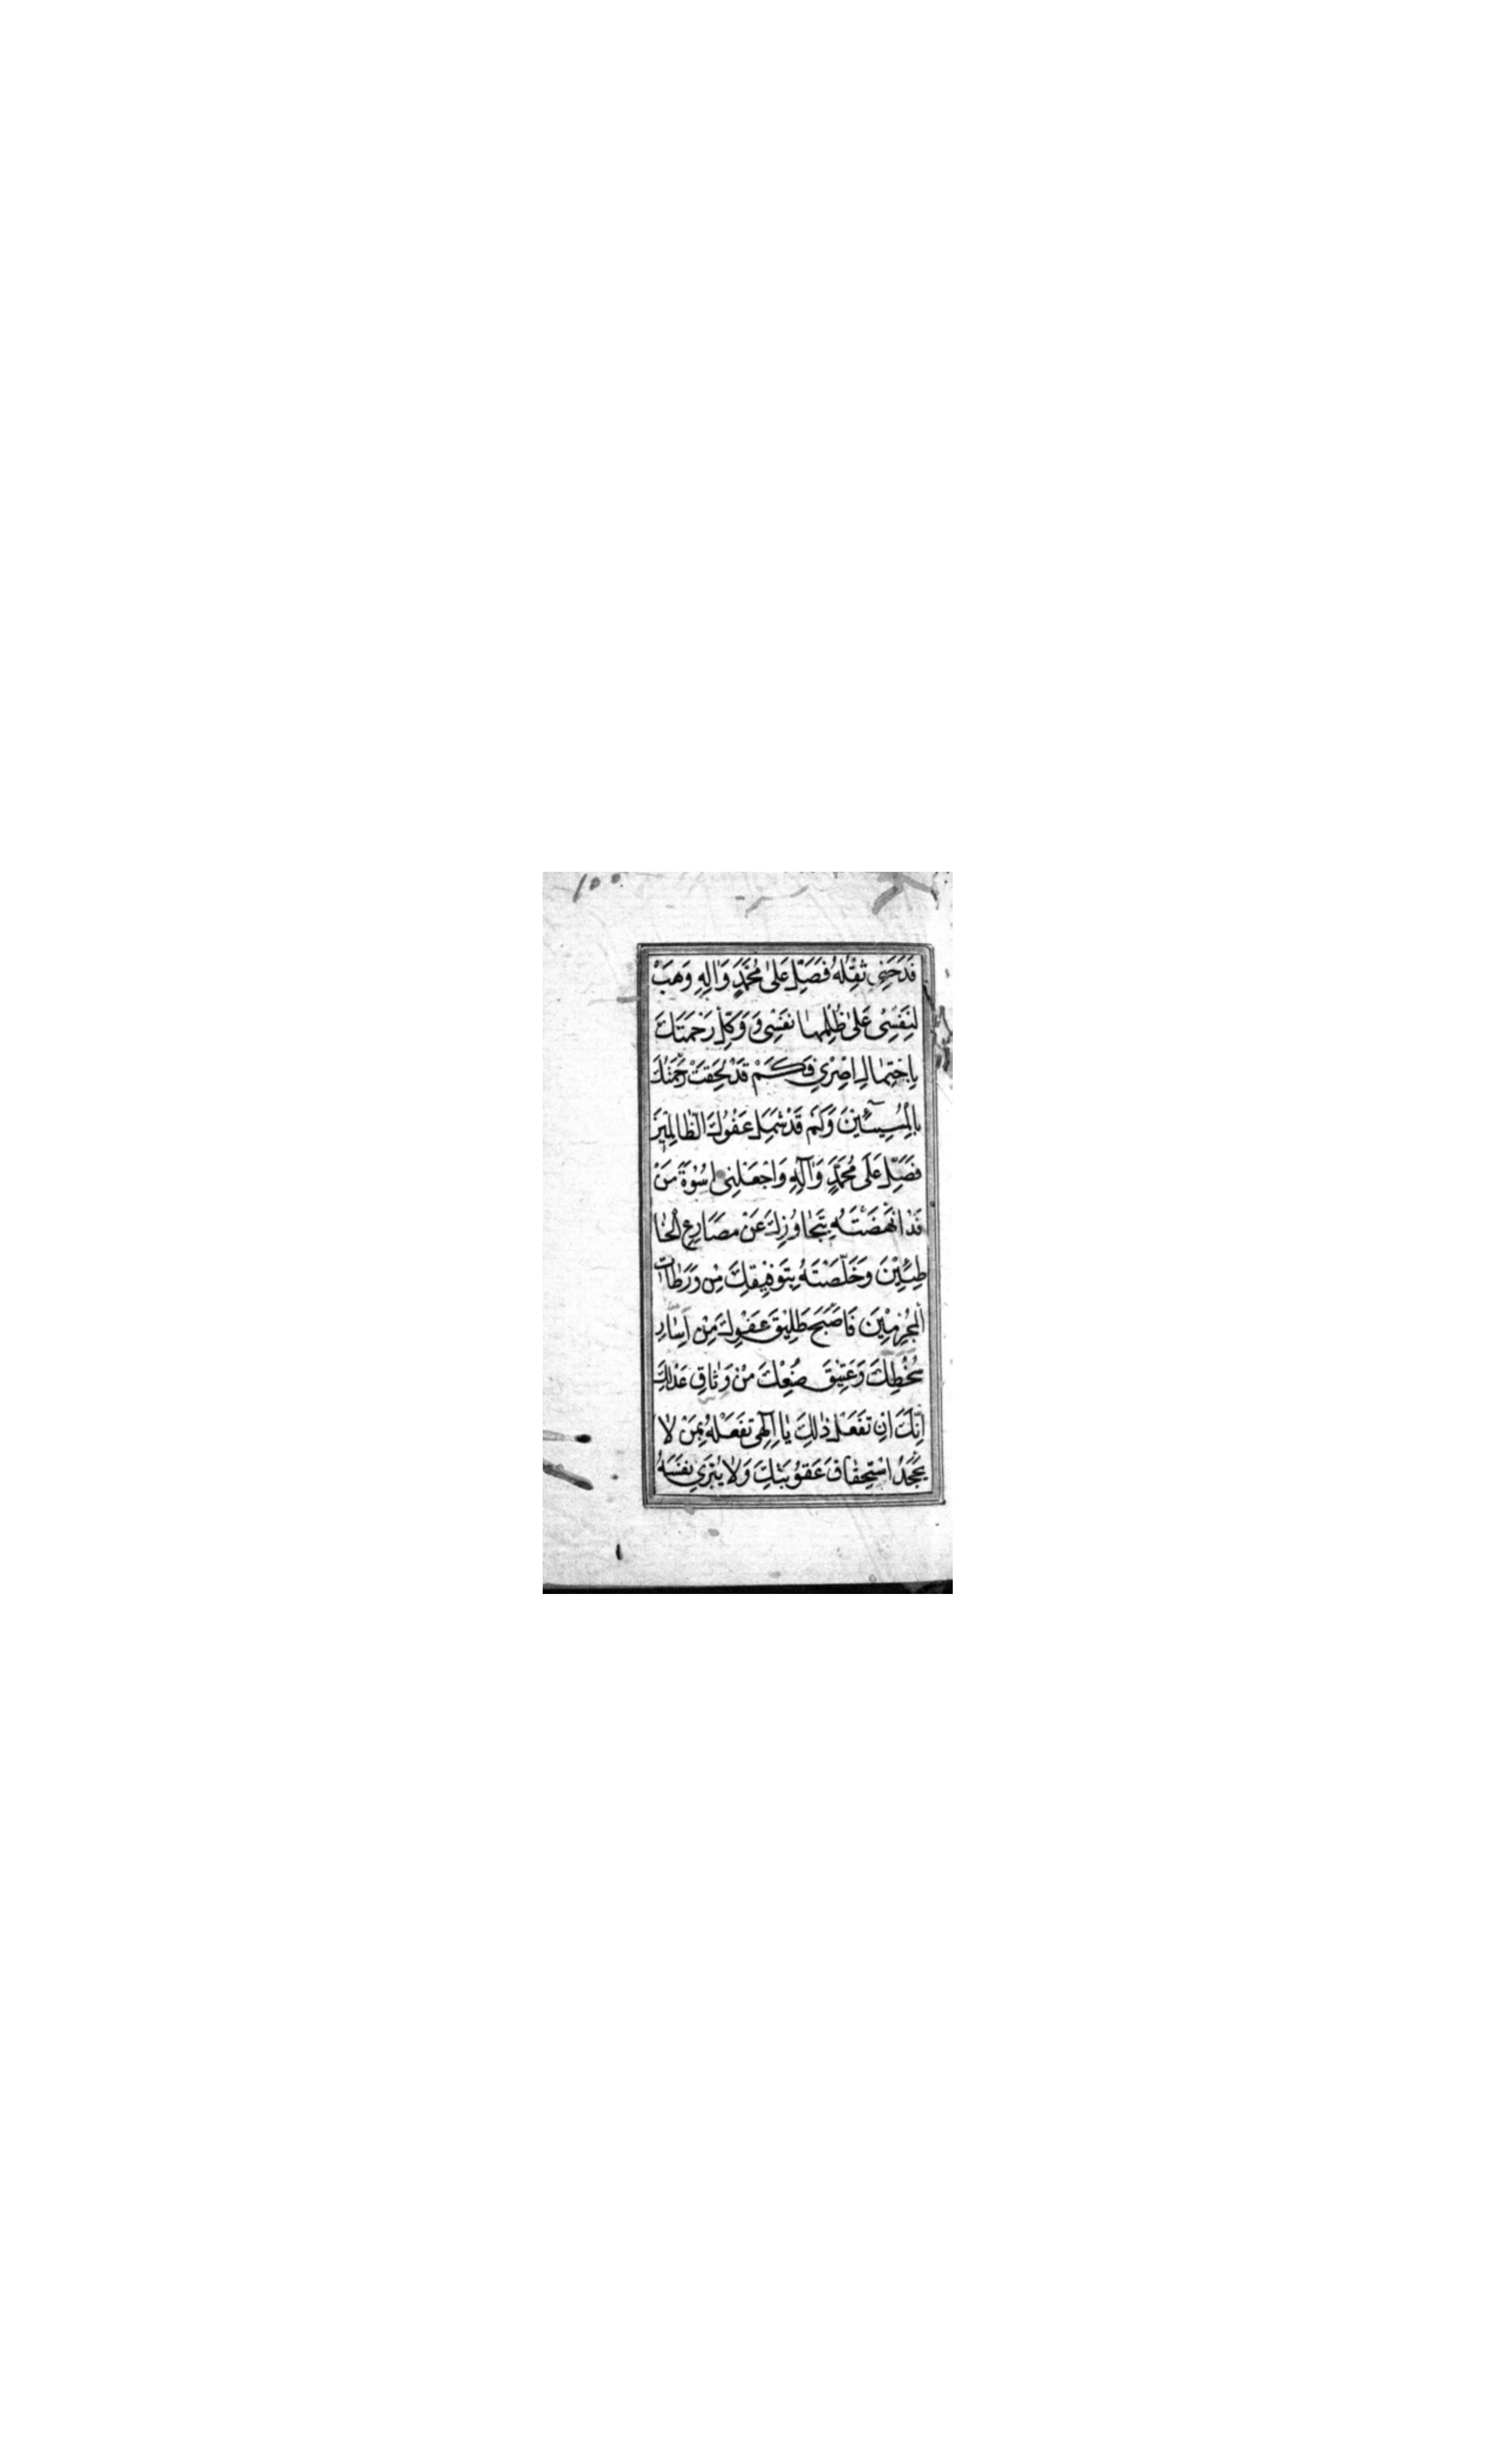 فَدَحَنِي ثِقْلُهُ فَصَلِّ عَلَىٰ مُحَمَّدٍ وَاٰلِهِ وَهَبْ
لِنَفْسِىْ عَلىٰ ظُلْمِهَا نَفْسِىْ وَ وَكِّلْ رَحْمَتَكَ
بِاحْتِمَالِ اِصْرِيْ فَكَمْ قَدْ لَحِقَتْ رَحْمَتُكَ
بِالْمُسِيْئِيْنَ وَكَمْ قَدْ شَمِلَ عَفْوُكَ الظَّالِمِيْنَ
فَصَلِّ عَلَى مُحَمَّدٍ وَاٰلِهِ وَاجْعَلْنِى اُسْوَةَ مَنْ
قَدْ اَنْهَضْتَهُ بِتَجَاوُزِكَ عَنْ مَصَارِعِ الْخَا
طِئِيْنَ وَخَلَّصْتَهُ بِتَوْفِيْقِكَ مِنْ وَرَطَاتِ
الْمُجْرِمِيْنَ فَاَصْبَحَ طَلِيْقَ عَفْوِكَ مِنْ اِسَارِ
سُخْطِكَ وَعَتِيْقَ صُنْعِكَ مِنْ وَثَاقِ عَدْلِكَ
اِنَّكَ اِنْ تَفْعَلْ ذٰلِكَ يَا اِلٰهِى تَفْعَلْهُ بِمَنْ لَا
يَجْحَدُ اسْتِحْقَاقَ عُقُوْبَتِكَ وَلَا يُبَرِّئُ نَفْسَهُ